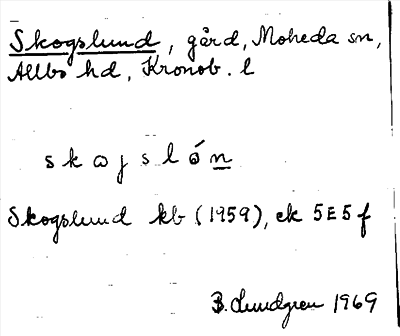 Skogslund, gård, Moheda sn,
Allbo hd, Kronob. l
skωjslón
Skogslund kb (1959), ek 5E5f
B. Lundgren 1969